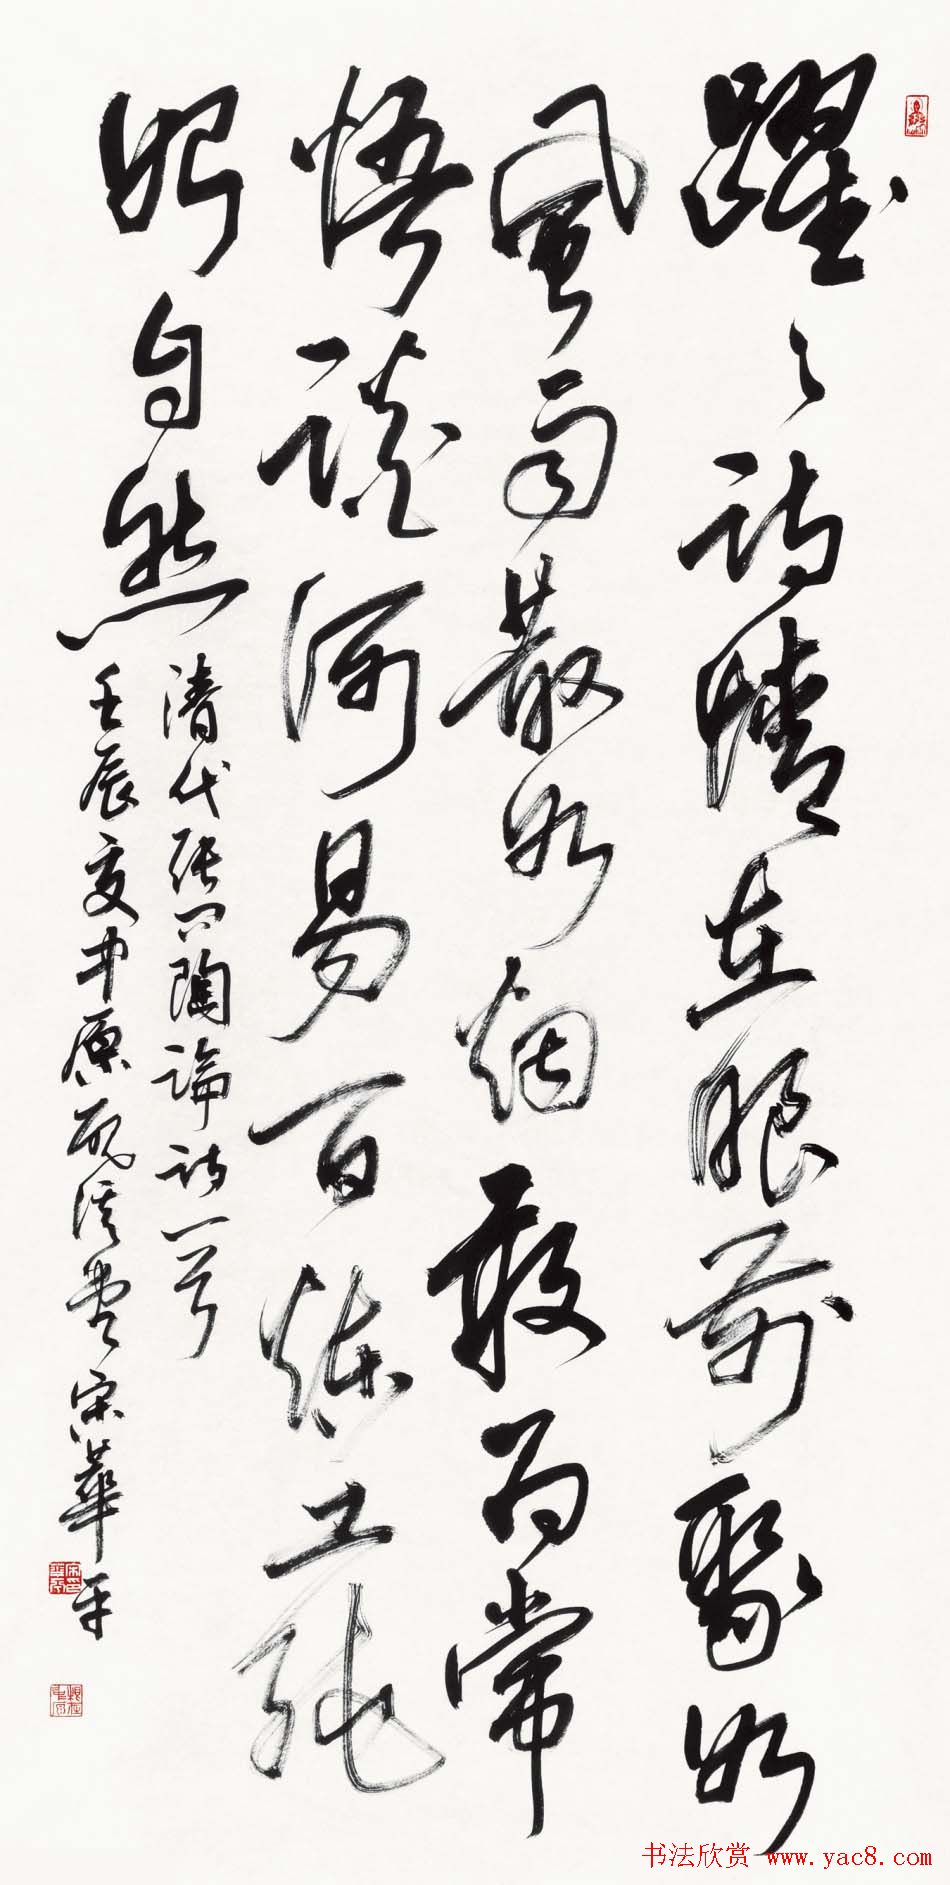 躍々詩情在眼前聚如
風雨散如烟敢為常
悟談何易百煉工純
始自然
清代張問陶論詩一首
壬辰夏中原宋華平
书法欣赏 www.yac8.com